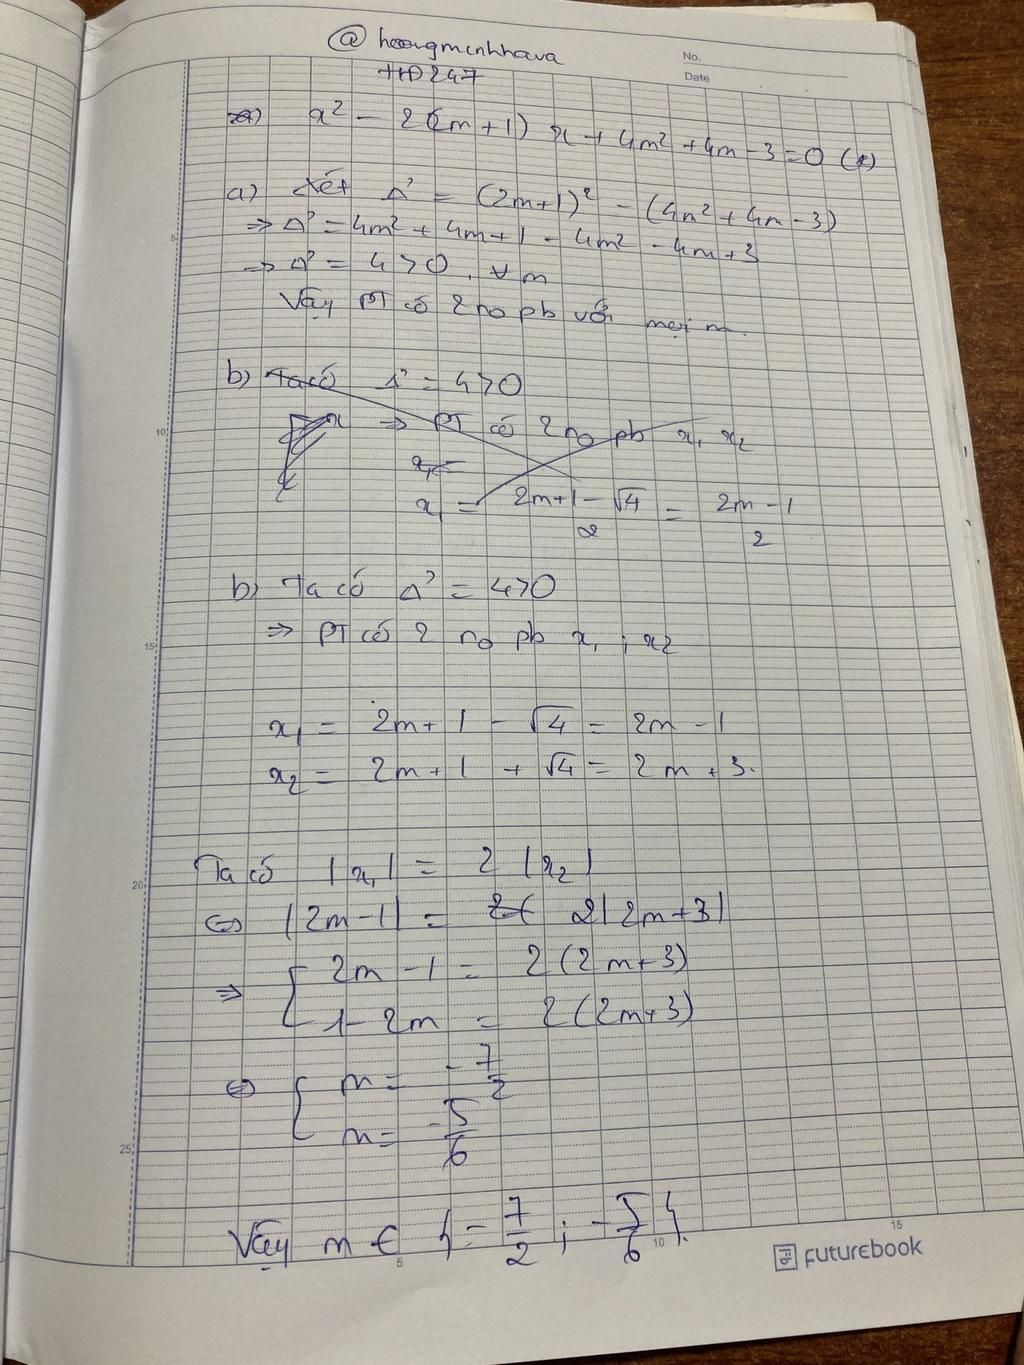 @ hoangminhhava
No.
HĐ247
Date
x² - 2(2m+1)x + 4m² + 4m - 3 = 0 (*)
a) Xét Δ' = (2m+1)² - (4m² + 4m - 3)
⇒ Δ' = 4m² + 4m + 1 - 4m² - 4m + 3
⇒ Δ' = 4 > 0, ∀m
Vậy PT có 2 no pb với mọi m.
b) Ta có Δ' = 4 > 0
⇒ PT có 2 no pb x₁ x₂
x₁ =
x₁ = (2m+1-√4)/2 = (2m-1)/2
b) Ta có Δ' = 4 > 0
⇒ PT có 2 no pb x₁ ; x₂
x₁ = 2m + 1 - √4 = 2m - 1
x₂ = 2m + 1 + √4 = 2m + 3.
Ta có |x₁| = 2 |x₂|
⇔ |2m-1| = 2( 2|2m+3|
⇒ [ 2m - 1 = 2(2m+3)
1 - 2m = 2(2m+3)
⇔ [ m = -7/2
m = -5/6
Vậy m ∈ {-7/2 ; -5/6}.
5 10 15 20 25
5 10 15
futurebook